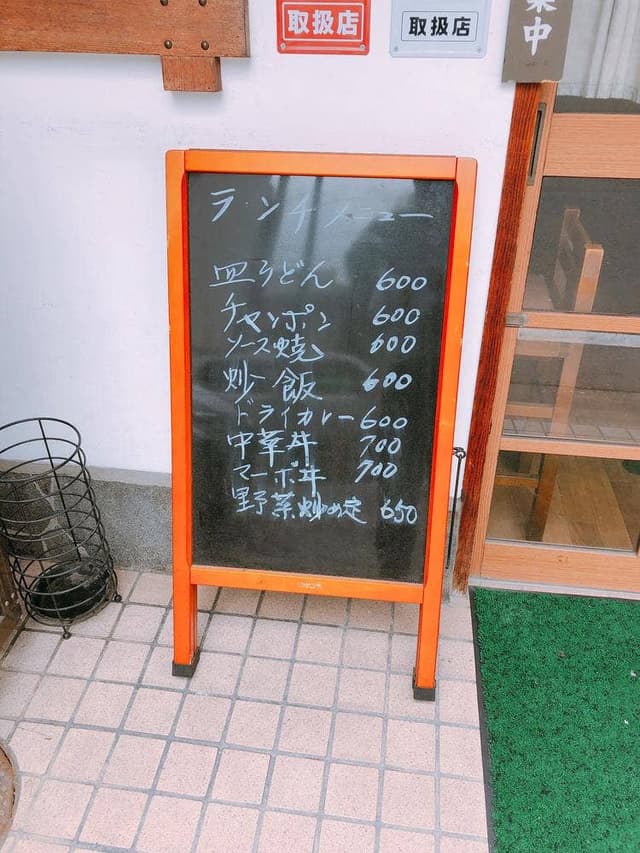 取扱店
取扱店
業中
ランチメニュー
皿うどん 600
チャンポン 600
ソース焼 600
炒飯 600
ドライカレー 600
中華丼 700
マーボ丼 700
野菜炒め定 650